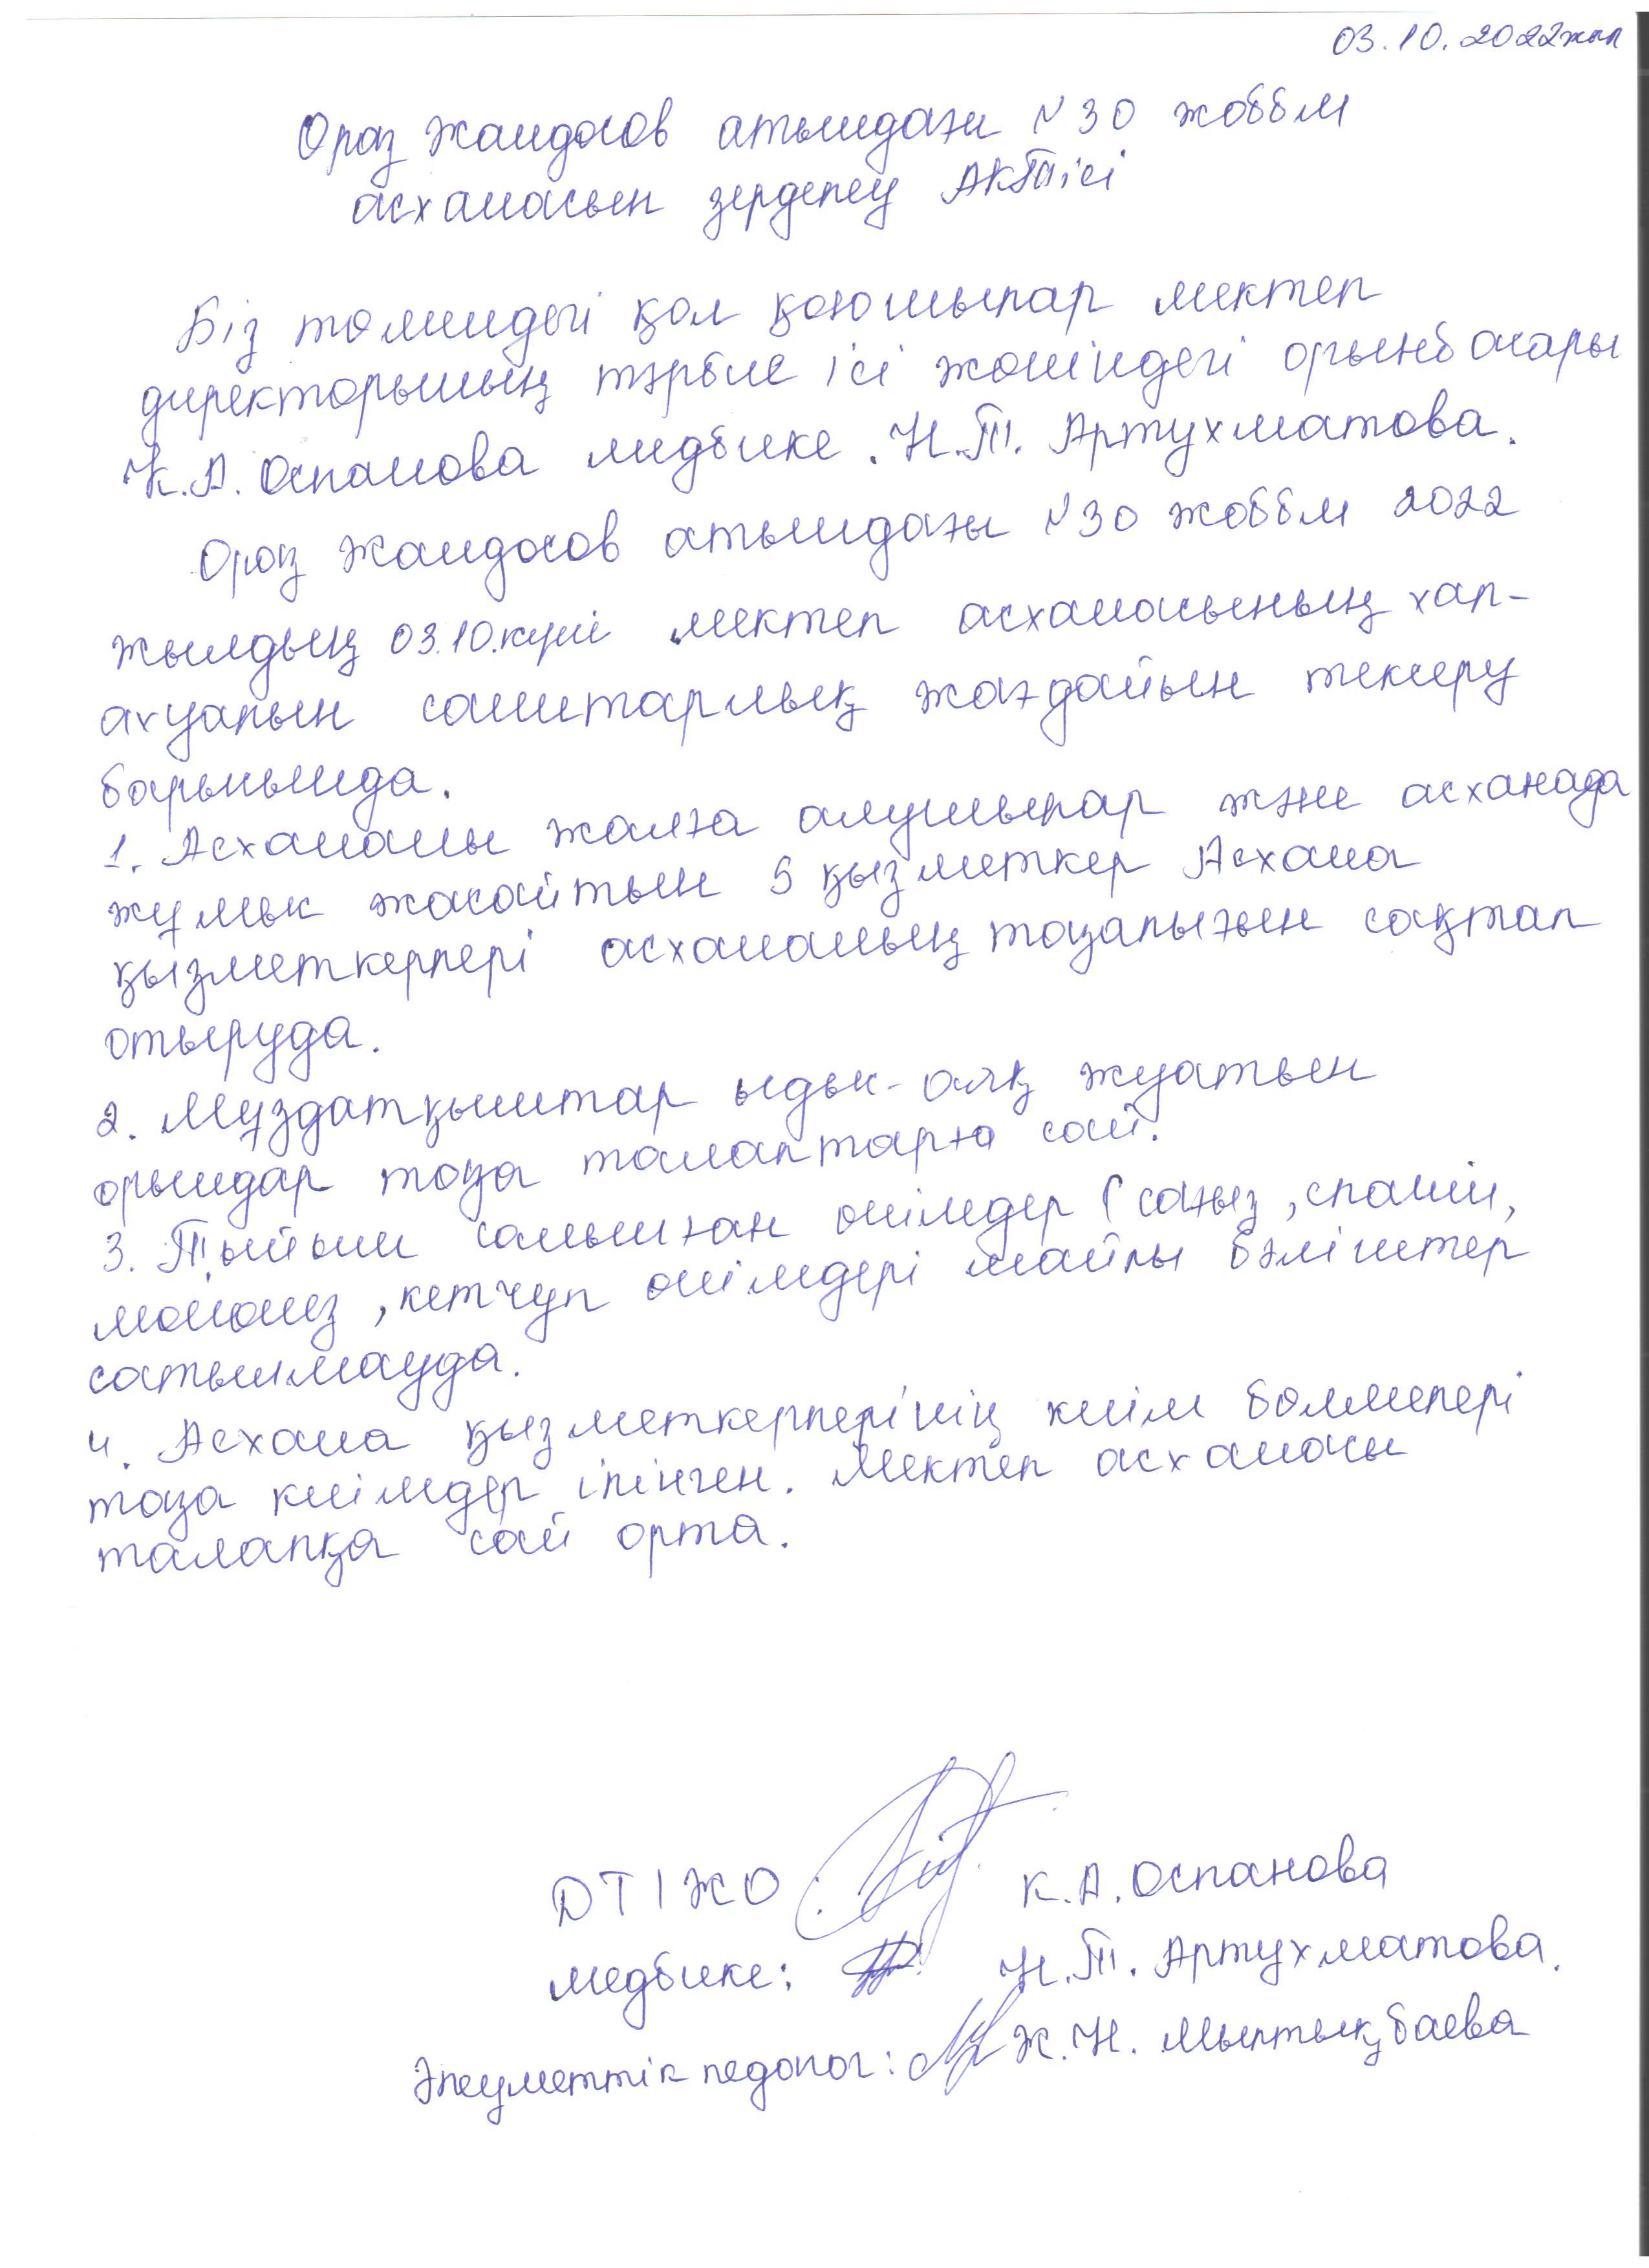 03.10.2022жыл
Ораз Жандосов атындағы №30 жоббм
асханасын зерделеу АКТісі
Біз төмендегі қол қоюшылар мектеп
директорының тәрбие ісі жөніндегі орынбасары
К.А. Оспанова медбике . Н.Т. Артухматова.
Ораз Жандосов атындағы №30 жоббм 2022
жылдың 03.10.күні мектеп асханасының хал-
ахуалын санитарлық жағдайын тексеру
барысында.
1. Асхананы жалға алушылар және асханада
жұмыс жасайтын 5 қызметкер Асхана
қызметкерлері асхананың тазалығын сақтап
отыруда.
2. Мұздатқыштар ыдыс-аяқ жуатын
орындар таза талаптарға сай.
3. Тыйым салынған өнімдер ( сағыз ,
майонез , кетчуп өнімдері майлы бәліштер
сатылмауда.
4. Асхана қызметкерлерінің киім бөлмелері
таза киімдер ілінген. Мектеп асханасы
талапқа сай орта.
ДТІЖО : К.А. Оспанова
медбике: Н.Т. Артухматова.
Әлеуметтік педогог: Ж.Н. Мылтықбаева